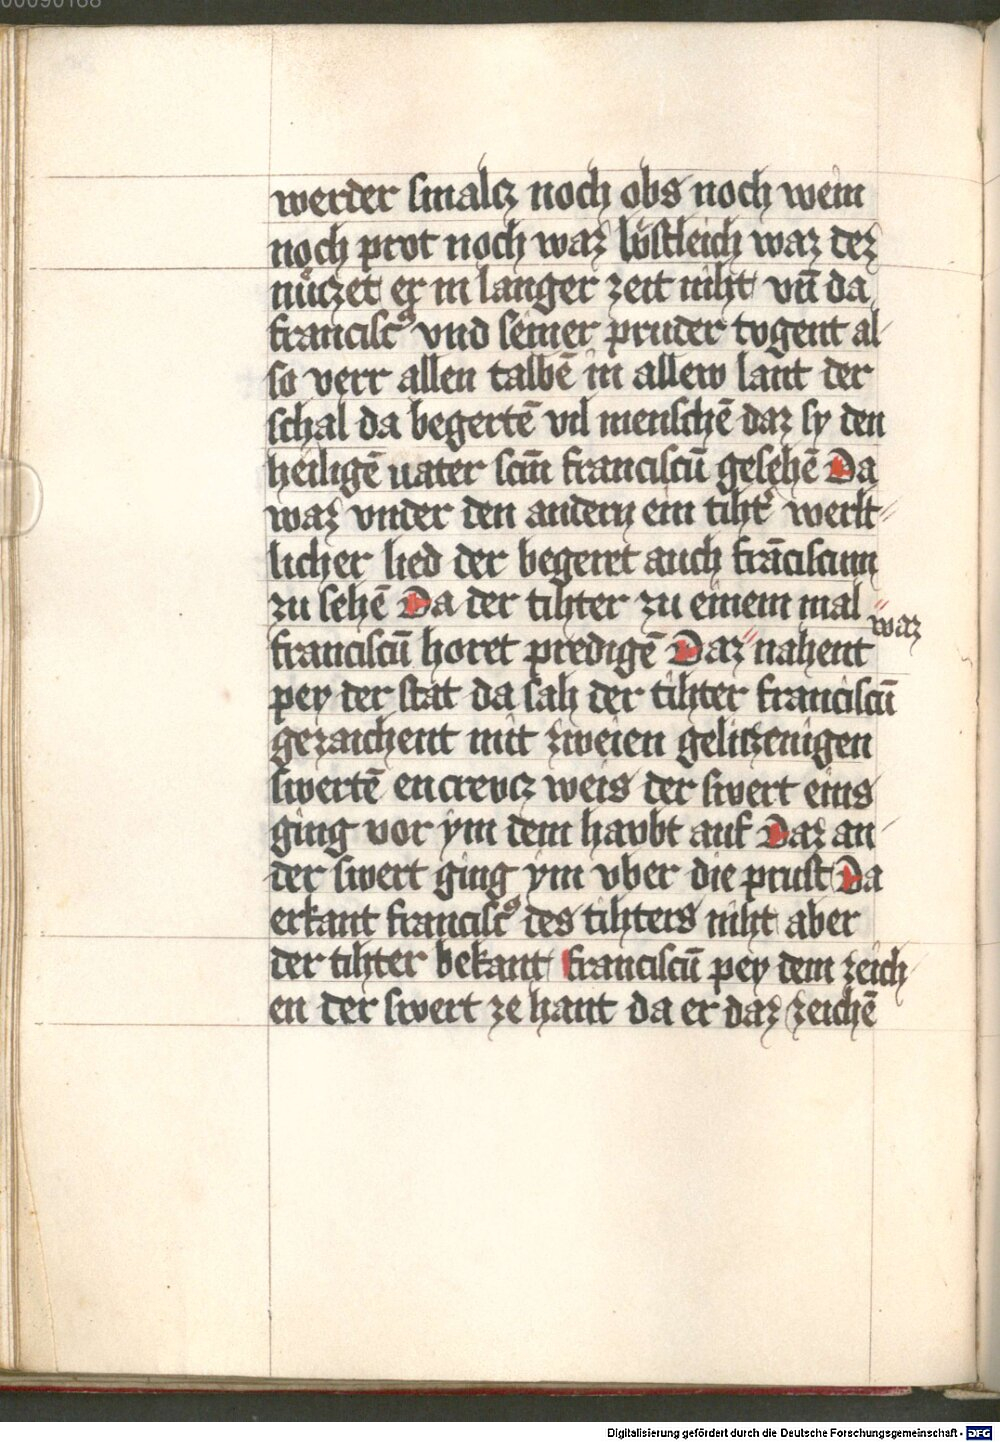 werder smalcz noch obs noch wein
noch prot noch waz lvͤstleich waz dez
nuͤczet er in langer zeit niht vn̄ da
francisc⁹ vnd seiner pruder tvgent al-
so verr allen talbē in allew lant der
schal da begertē vil menschē daz sy den
heiligē uater scm̄ franciscū gesehē Da
waz vnder den andern ein tiht' werlt-
licher lied der begeret auch frāciscum
zu sehē Da der tihter zu einem mal
waz
franciscū horet predigē Daz " nahent
pey der stat da sah der tihter franciscū
gezaichent mit zweien gelitzenigen
swertē encrevcz weis der swert eins
ging vor ym dem havbt auf Daz an-
der swert ging ym vber die prust Da
erkant francisc⁹ des tihters niht aber
der tihter bekant franciscū pey dem zeich-
en der swert ze hant da er daz zeichē
Digitalisierung gefördert durch die Deutsche Forschungsgemeinschaft - DFG